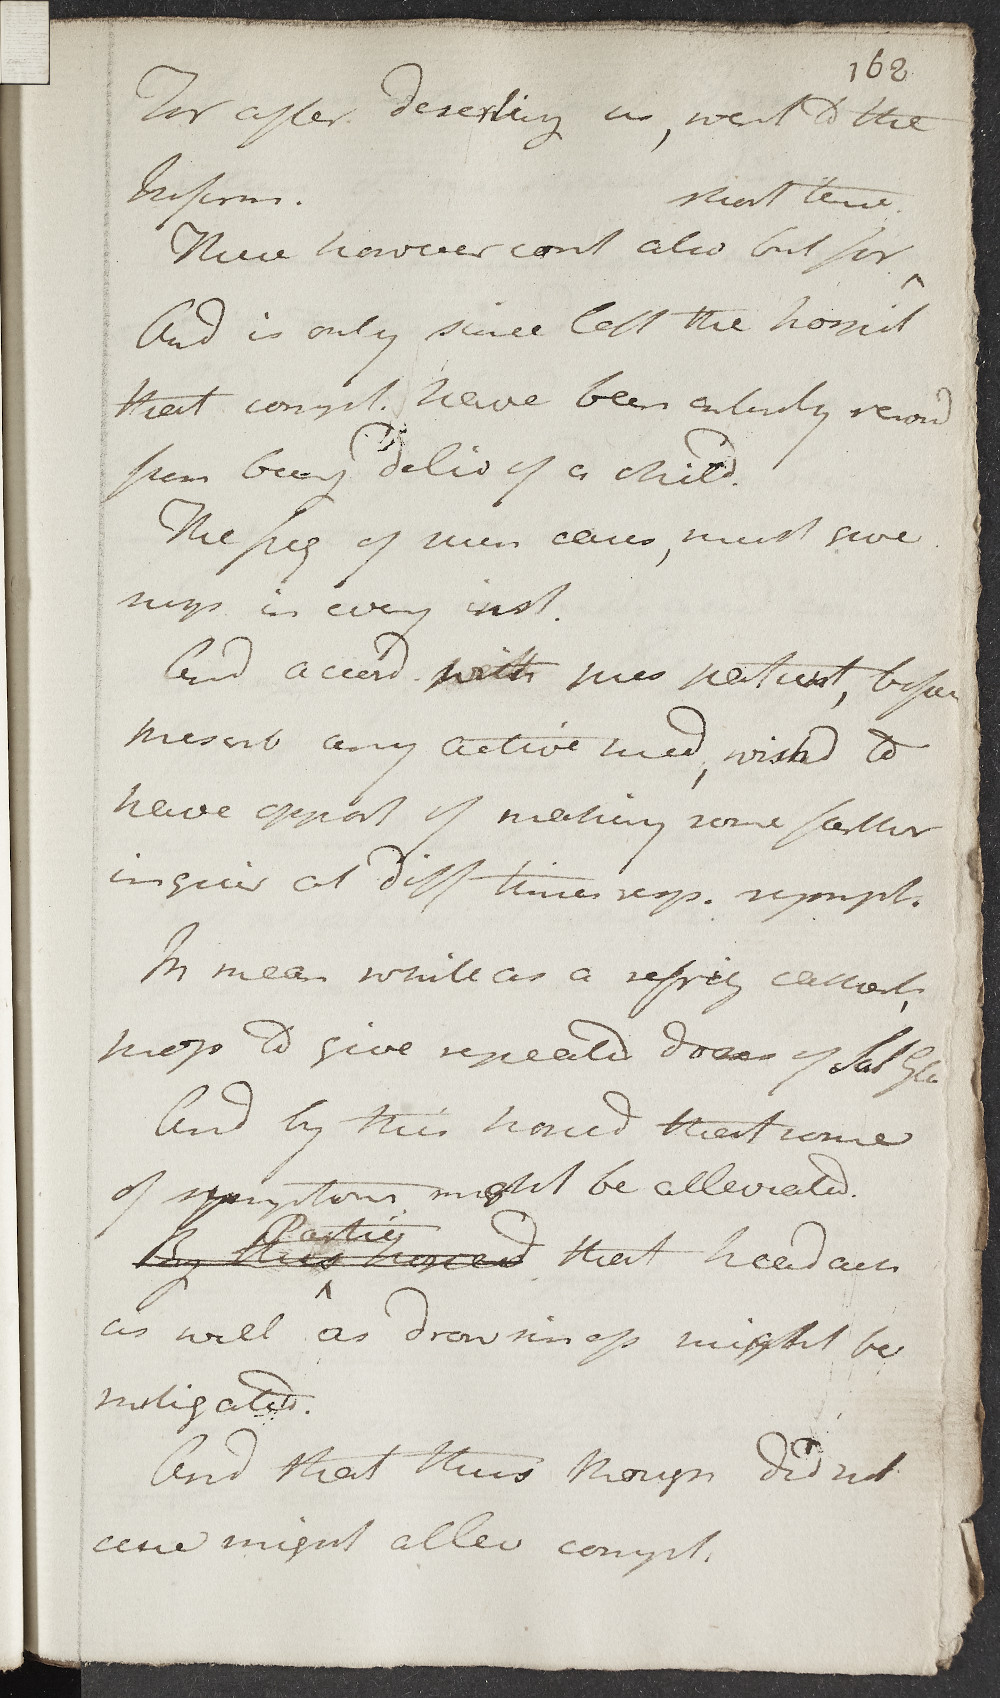 162
For after deserting us, went to the
Infirm.
short time.
There however cont also but for ^
And is only since left the hospit
that compl. have been entirely remov
from being deliv of a child.
The freq of such cases, must give
in every inst.
And accord with pres patient, before
prescrib any active med, wishd to
have opport of making some farther
inquir at diff times resp. sympt.
In mean while as a refrig cathart,
prop to give repeated doses of Sal Gla
And by this hoped that some
of symptoms might be alleviated.
Partic
By this hoped that headach
as well ^ as drowsiness might be
mitigated.
And that thus though did not
cure might allev compl.